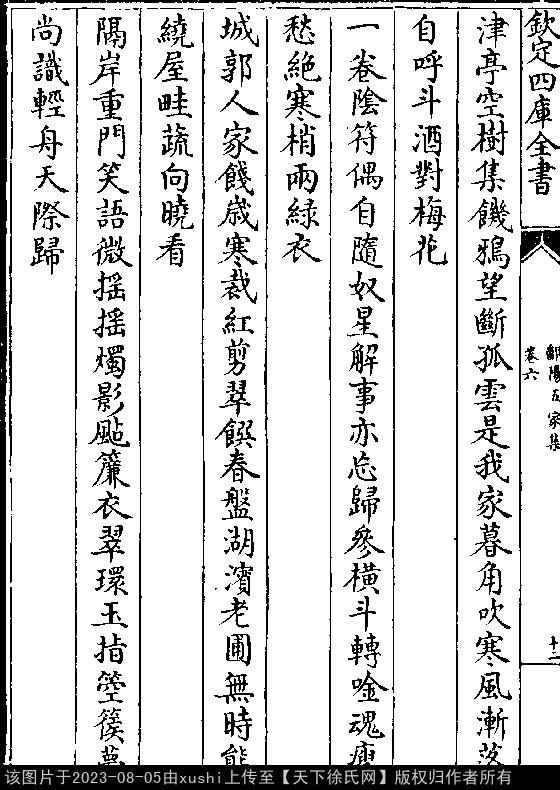 欽定四庫全書
鄱陽五家集
卷六
十二
津亭空樹集饑鴉望斷孤雲是我家暮角吹寒風漸落
自呼斗酒對梅花
一卷陰符偶自隨奴星解事亦忘歸參橫斗轉唫魂瘦
愁絶寒梢兩緑衣
城郭人家餞歳寒裁紅剪翠饌春盤湖濱老圃無時態
繞屋畦蔬向曉看
隔岸重門笑語微揺揺燭影颭簾衣翠環玉指箜篌夢
尚識輕舟天際歸
该图片于2023-08-05由xushi上传至【天下徐氏网】版权归作者所有